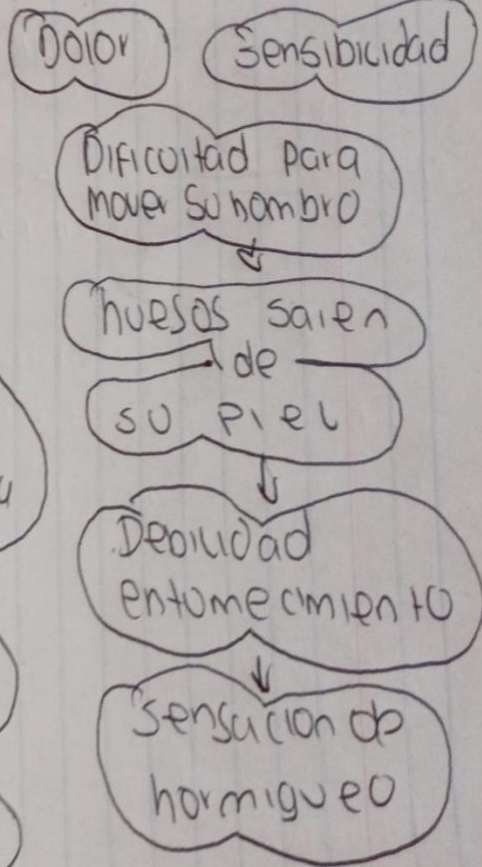 Dolor
Sensibilidad
Dificultad para
mover su hombro
huesos salen
de
su piel
Debilidad
entumecimiento
sensacion de
hormigueo